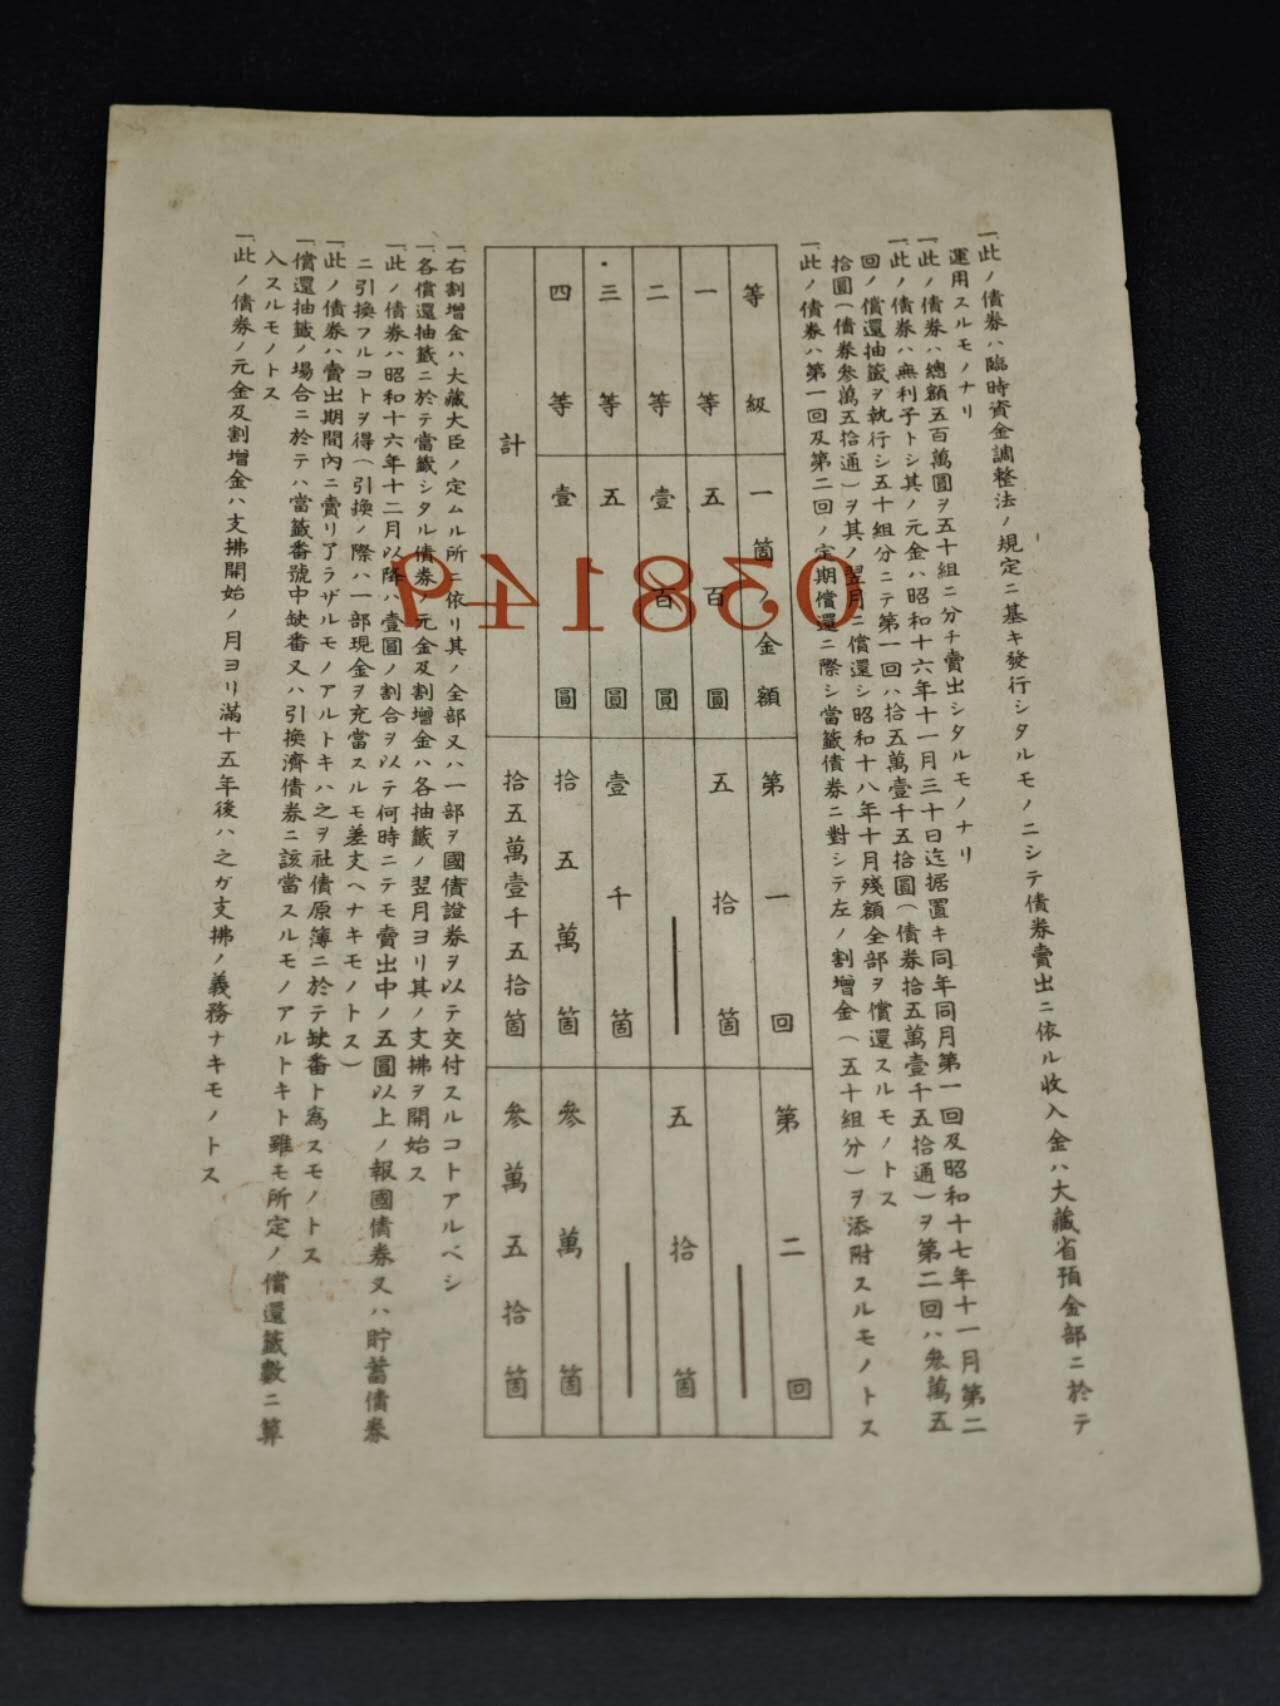 一、此ノ債券ハ臨時資金調整法ノ規定ニ基キ發行シタルモノニシテ債券賣出ニ依ル收入金ハ大藏省預金部ニ於テ
運用スルモノナリ
一、此ノ債券ハ總額五百萬圓ヲ五十組ニ分チ賣出シタルモノナリ
一、此ノ債券ハ無利子トシ其ノ元金ハ昭和十六年十一月三十日迄据置キ同年同月第一回及昭和十七年十一月第二
回ノ償還抽籤ヲ執行シ五十組分ニテ第一回ハ拾五萬壹千五拾圓(債券拾五萬壹千五拾通)ヲ第二回ハ參萬五
拾圓(債券參萬五拾通)ヲ其ノ翌月ニ償還シ昭和十八年十月殘額全部ヲ償還スルモノトス
一、此ノ債券ハ第一回及第二回ノ定期償還ニ際シ當籤債券ニ對シテ左ノ割增金(五十組分)ヲ添附スルモノトス
等級 一箇ノ金額 第一回 第二回
一等 五百圓 五拾箇 ―
二等 壹百圓 ― 五拾箇
三等 五圓 壹千箇 ―
四等 壹圓 拾五萬箇 參萬箇
計 拾五萬壹千五拾箇 參萬五拾箇
0381149
一、右割增金ハ大藏大臣ノ定ムル所ニ依リ其ノ全部又ハ一部ヲ國債證券ヲ以テ交付スルコトアルベシ
一、各償還抽籤ニ於テ當籤シタル債券ノ元金及割增金ハ各抽籤ノ翌月ヨリ其ノ支拂ヲ開始ス
一、此ノ債券ハ昭和十六年十二月以降ハ壹圓ノ割合ヲ以テ何時ニテモ賣出中ノ五圓以上ノ報國債券又ハ貯蓄債券
ニ引換フルコトヲ得(引換ノ際ハ一部現金ヲ充當スルモ差支ヘナキモノトス)
一、此ノ債券ハ賣出期間內ニ賣リ了ラザルモノアルトキハ之ヲ社債原簿ニ於テ缺番ト爲スモノトス
一、償還抽籤ノ場合ニ於テハ當籤番號中缺番又ハ引換濟債券ニ該當スルモノアルトキト雖モ所定ノ償還籤數ニ算
入スルモノトス
一、此ノ債券ノ元金及割增金ハ支拂開始ノ月ヨリ滿十五年後ハ之ガ支拂ノ義務ナキモノトス